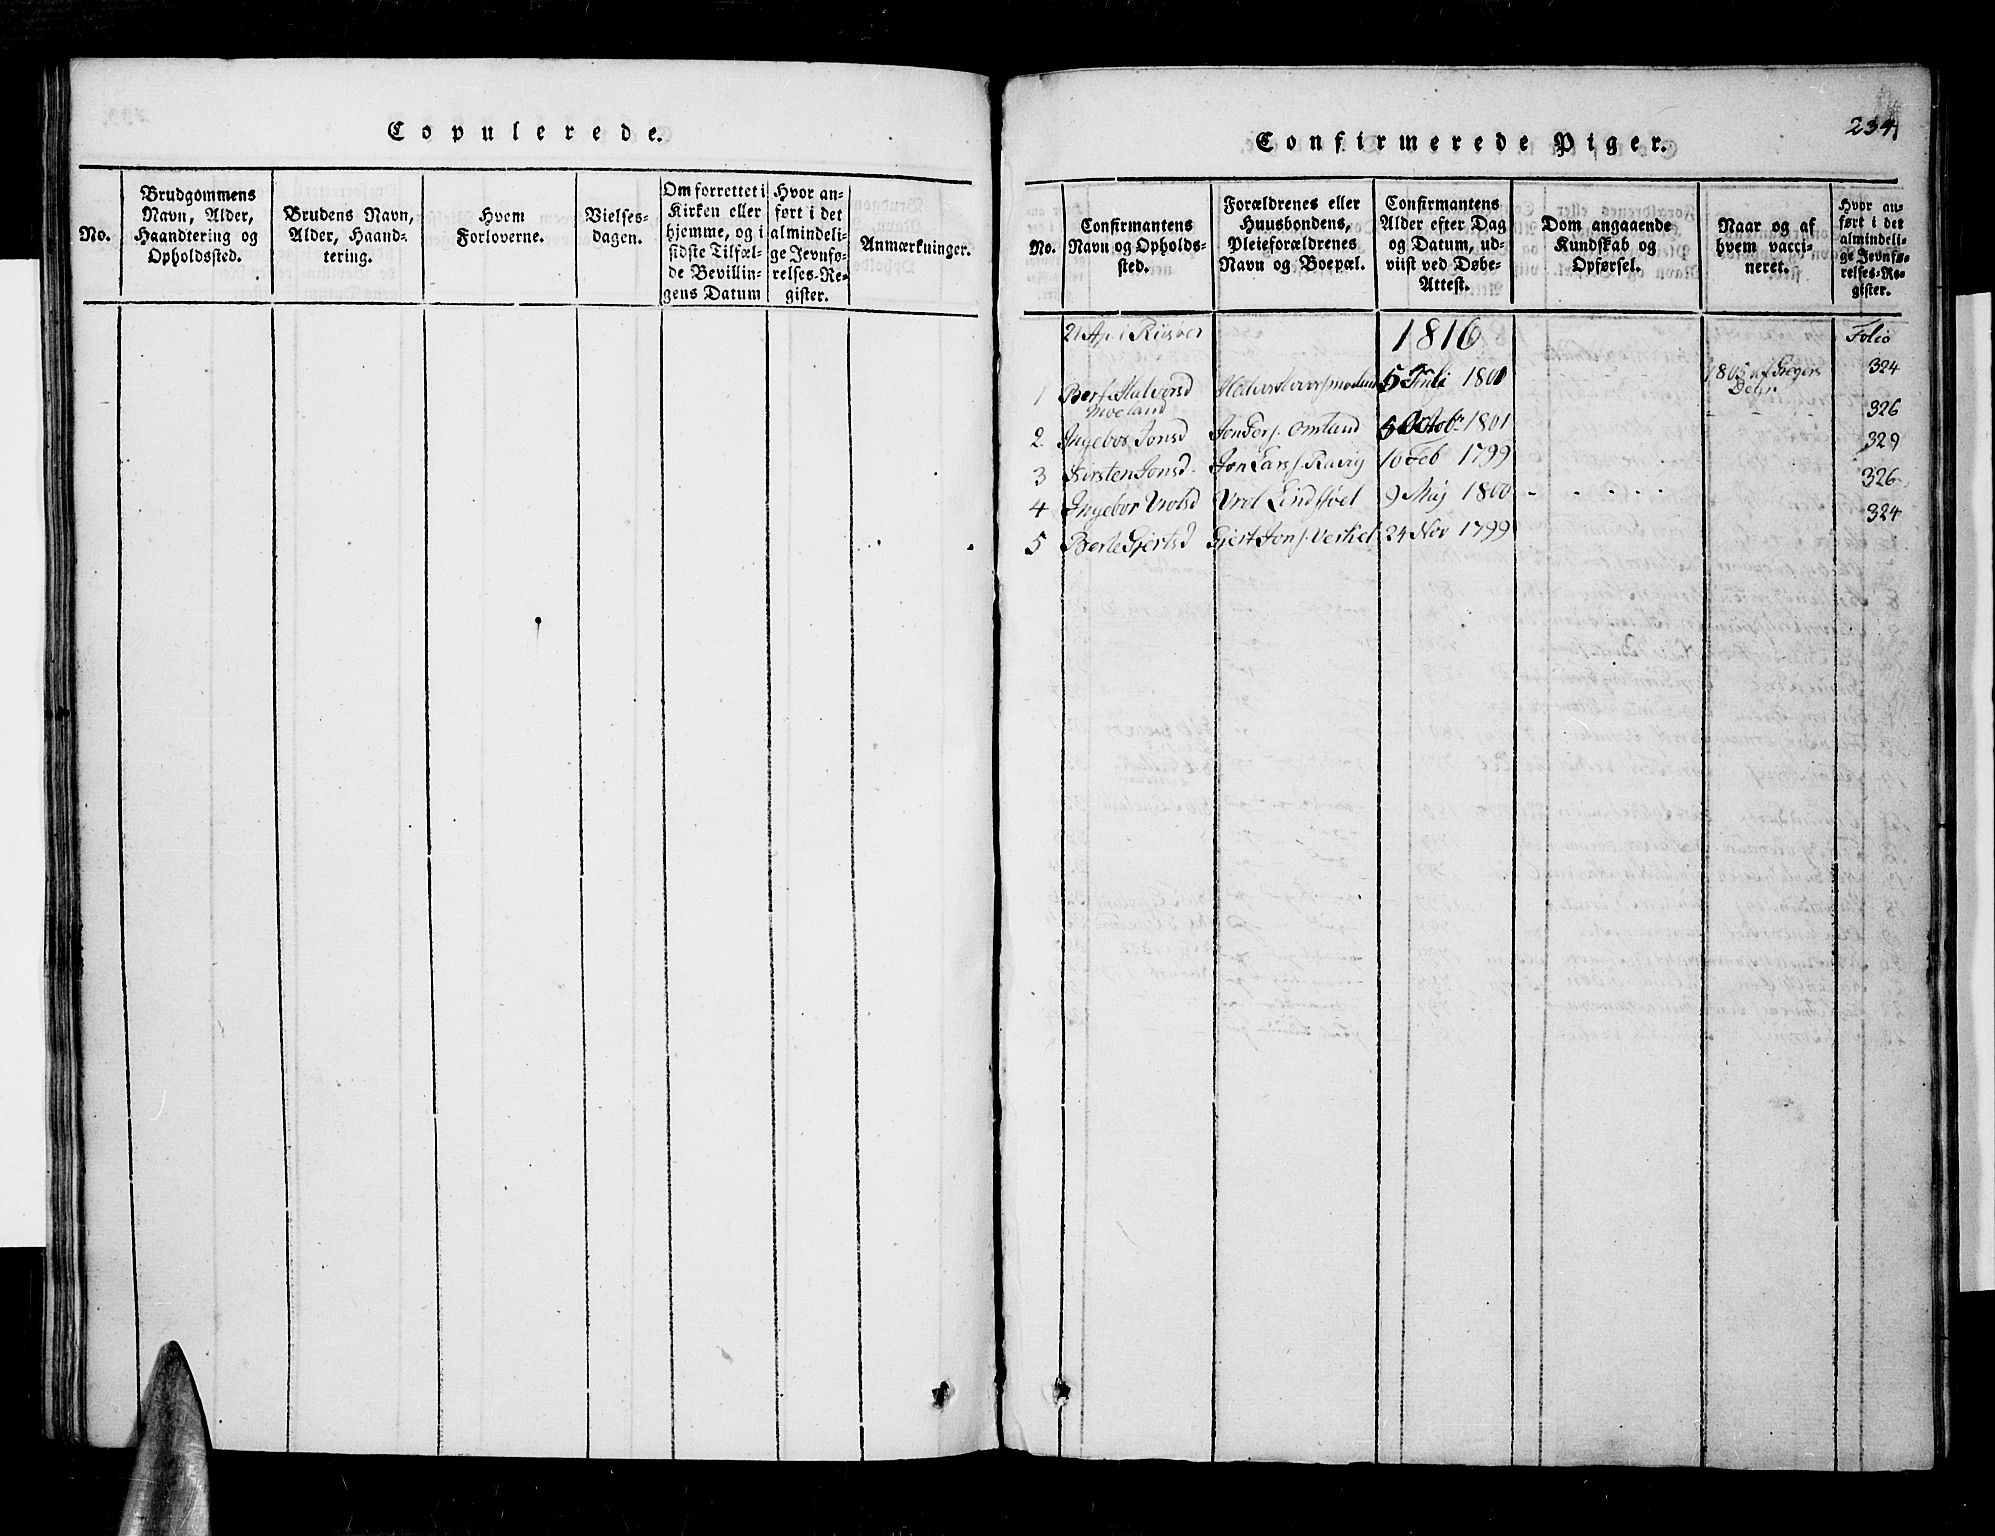 Copulerede.
No.
Brudgommens
Navn, Alder,
Haandtering og
Opholdssted.
Brudens Navn,
Alder, Haand-
tering.
Hvem
Forloverne.
Vielses-
dagen.
Om forrettet i
Kirken eller
hjemme, og i
sidste Tilfæl-
de Bevillin-
gens Datum
Hvor an-
ført i det
almindeli-
ge Jevnfø-
relses-Re-
gister.
Anmærkninger.
234
Confirmerede Piger.
No.
Confirmantens
Navn og Opholds-
sted.
Forældrenes eller
Huusbondens,
Pleieforældrenes
Navn og Boepæl.
Confirmantens
Alder efter Dag
og Datum, ud-
viist ved Døbe-
Attest.
Dom angaaende
Kundskab og
Opførsel.
Naar og af
hvem vacci-
neret.
Hvor an-
ført i det
almindeli-
ge Jevnfø-
relses-Re-
gister.
1816 Folio
1 Halvorsd 5 Juli 1801 1805 af 324
Moeland
2 Ingebor Jonsd Omland 5 Octobr 1801 326
3 Kirsten Jonsd Jon Lars. Ravig 10 Feb 1799 329
4 Ingebor Vrolsd Vrol Lindstøel 9 Maj 1800 326
5 Berte Gjertsd Gjert Jons. Verhei 24 Nov 1799 324